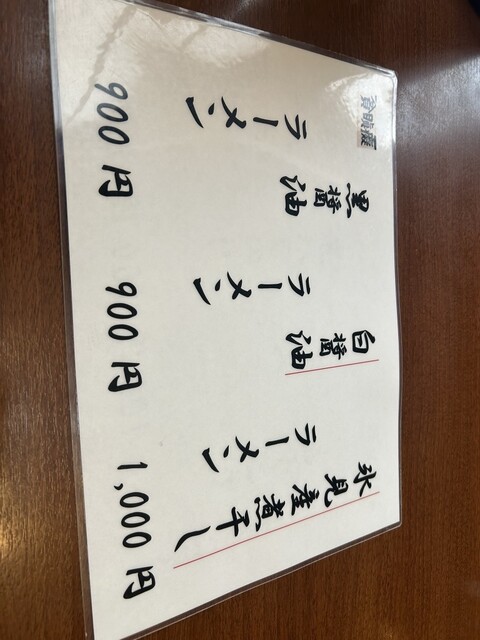 黒醤油
ラーメン
900円
白醤油
ラーメン
900円
氷見産煮干し
ラーメン
1,000円